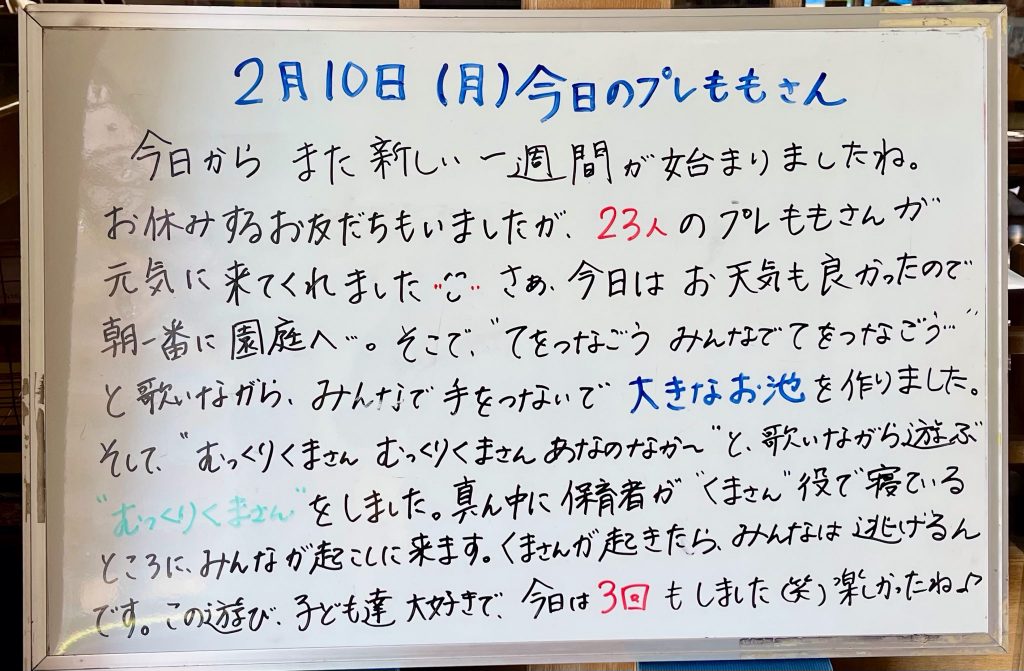 2月10日(月)今日のプレももさん
今日から また 新しい 一週間が始まりましたね。
お休みするお友だちもいましたが、23人のプレももさんが
元気に来てくれました さぁ、今日は お天気も良かったので
朝一番に園庭へ…。そこで、"てをつなごう みんなでてをつなごう…"
と歌いながら、みんなで手をつないで 大きなお池を作りました。
そして、"むっくりくまさん むっくりくまさん あなのなか〜"と、歌いながら遊ぶ
"むっくりくまさん"をしました。真ん中に保育者が"くまさん"役で寝ている
ところに、みんなが起こしに来ます。くまさんが起きたら、みんなは逃げるん
です。この遊び、子ども達 大好きで、今日は3回もしました(笑)楽しかったね♪